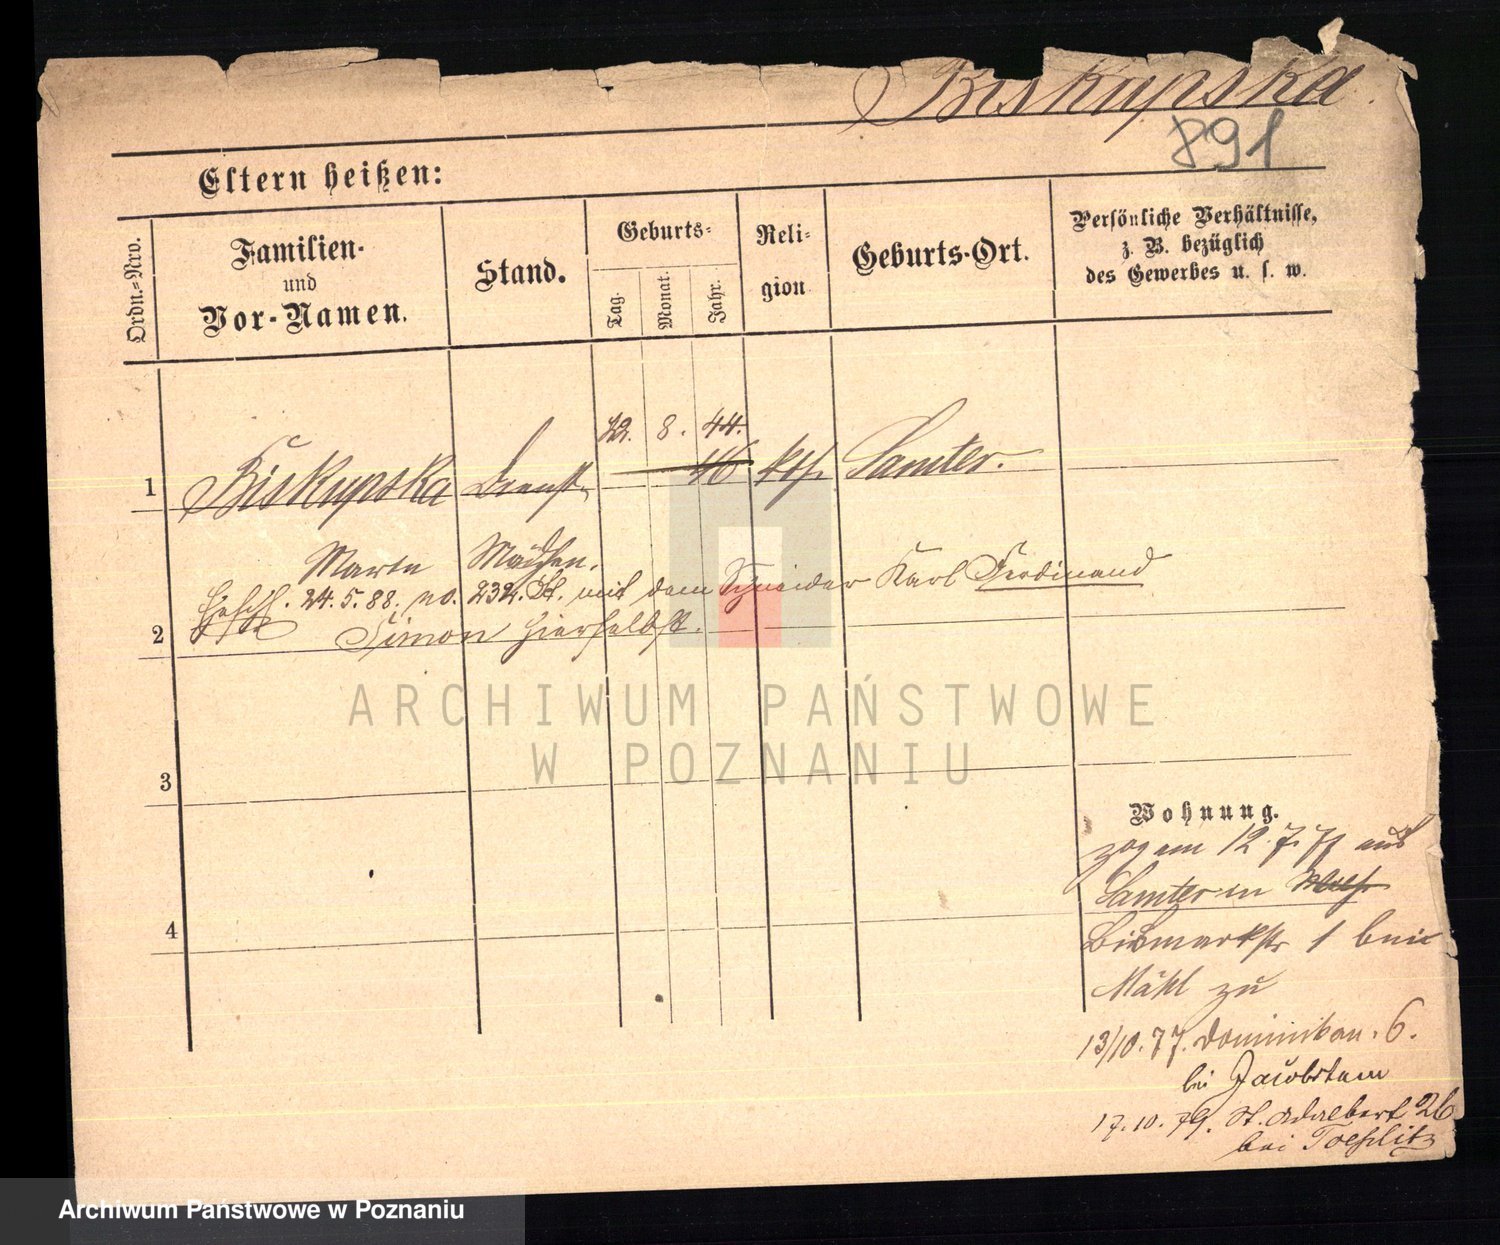 Biskupska.
891
Eltern heißen:
Ordn.=Nro.
Familien-
und
Vor-Namen.
Stand.
Geburts-
Tag.
Monat.
Jahr.
Reli-
gion
Geburts-Ort.
Persönliche Verhältnisse,
z. B. bezüglich
des Gewerbes u. s. w.
22. 8. 44.
1 Biskupska Dienst- 46 kth Samter.
Mädchen.
24. 5. 88. no. 232. St. mit dem Schneider Karl Ferdinand
2 Simon hierselbst.
ARCHIWUM PAŃSTWOWE
W POZNANIU
3
4
Wohnung.
zog am 12. 7. 77 aus
Samter in
Bismarkstr 1 bei
zu
13/10. 77. Dominikan. 6.
bei
17. 10. 79. St. Adalbert 26
bei Toeplitz
Archiwum Państwowe w Poznaniu